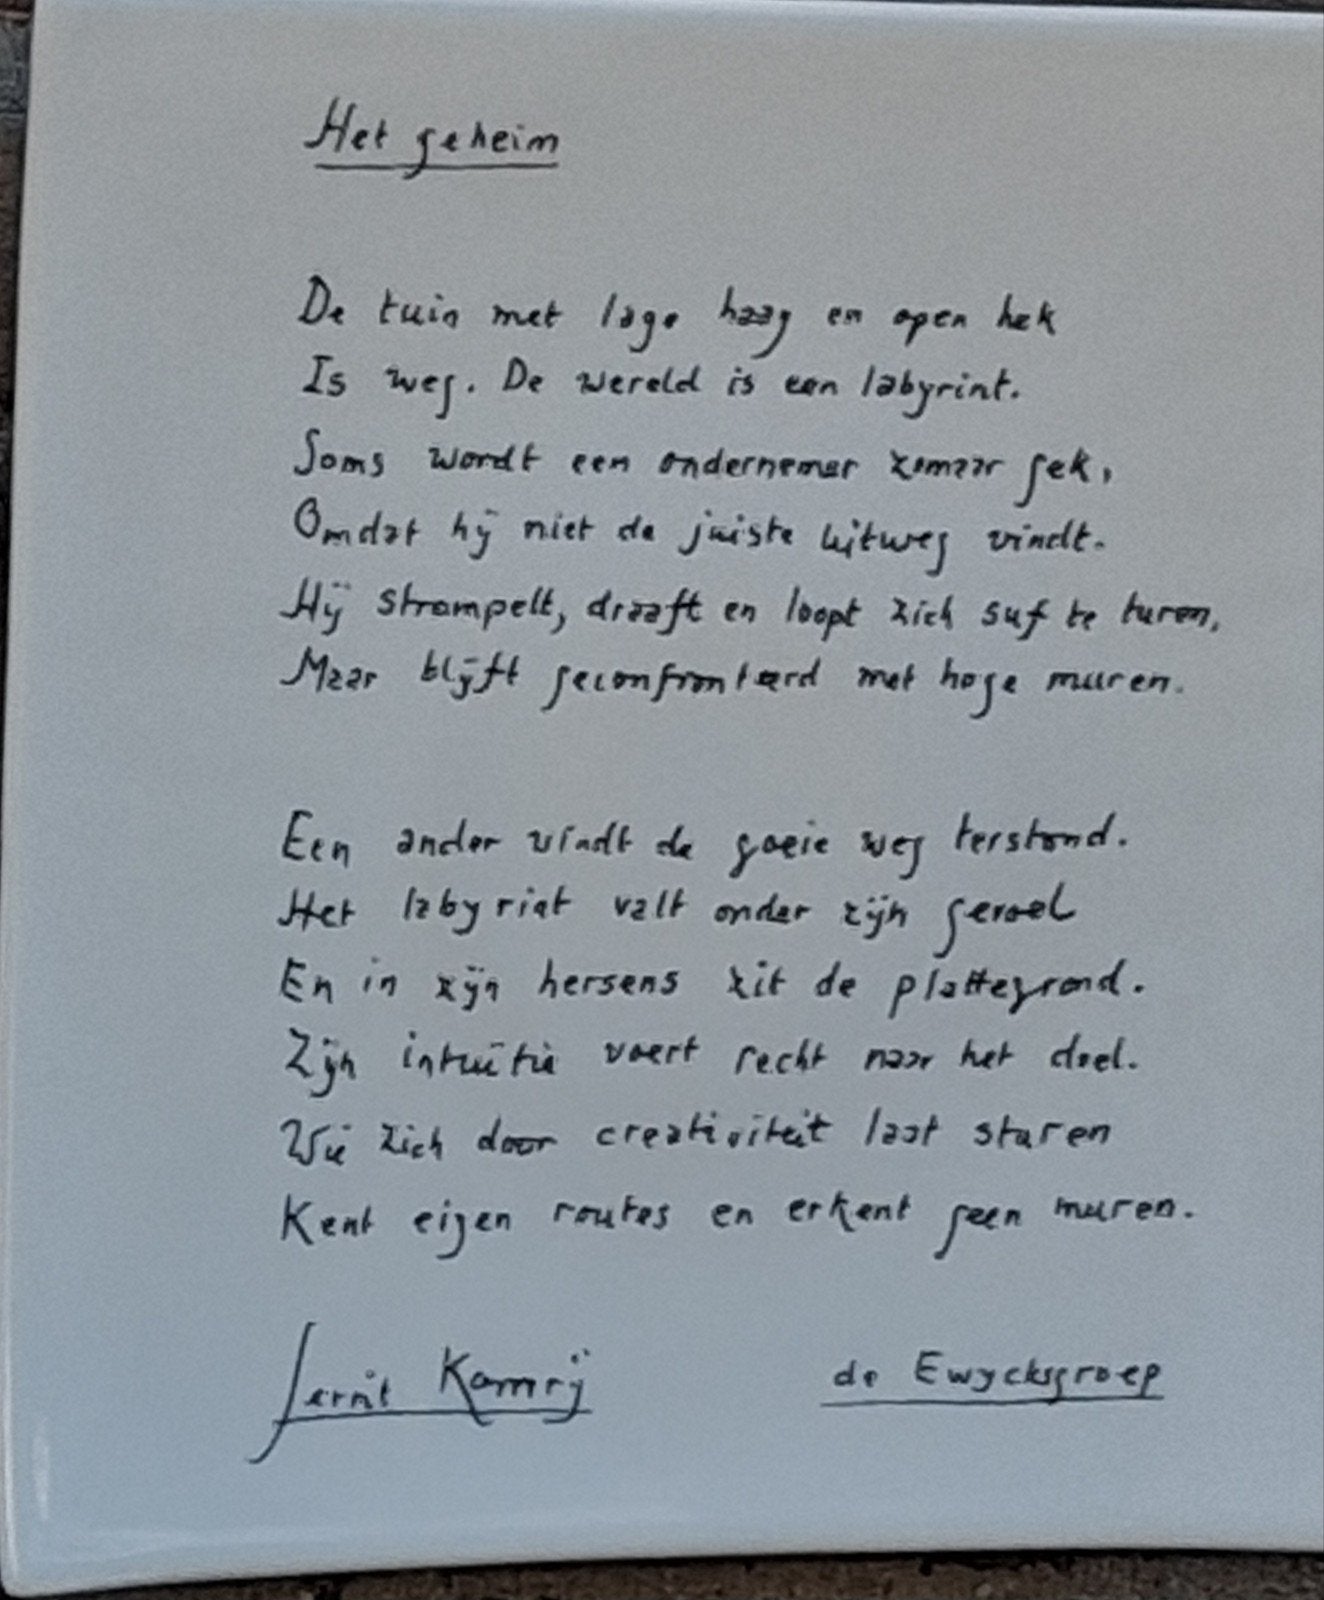 Het geheim
De tuin met lage haag en open hek
Is weg. De wereld is een labyrint.
Soms wordt een ondernemer zomaar gek,
Omdat hij niet de juiste uitweg vindt.
Hij strompelt, draaft en loopt zich suf te turen,
Maar blijft geconfronteerd met hoge muren.
Een ander vindt de goeie weg terstond.
Het labyrint valt onder zijn gevoel
En in zijn hersens zit de plattegrond.
Zijn intuïtie voert recht naar het doel.
Wie zich door creativiteit laat sturen
Kent eigen routes en erkent geen muren.
Gerrit Komrij de Ewycksgroep